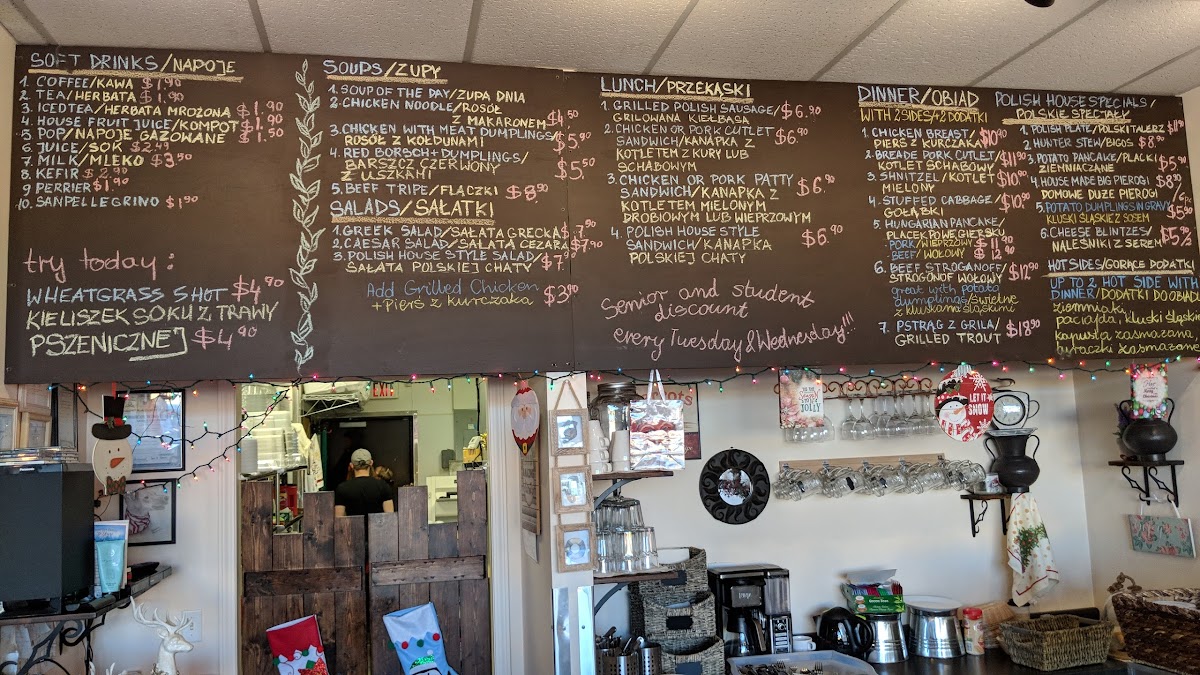 SOFT DRINKS/NAPOJE
1. COFFEE/KAWA $1.90
2. TEA/HERBATA $1.90
3. ICEDTEA/HERBATA MROŻONA $1.90
4. HOUSE FRUIT JUICE/KOMPOT $1.90
5. POP/NAPOJE GAZOWANE $1.90
6. JUICE/SOK $2.49
7. MILK/MLEKO $3.50
8. KEFIR $2.90
9 PERRIER $1.90
10. SANPELLEGRINO $1.90
try today:
WHEATGRASS SHOT $4.90
KIELISZEK SOKU Z TRAWY
PSZENICZNEJ $4.90
SOUPS/ZUPY
1. SOUP OF THE DAY/ZUPA DNIA
2. CHICKEN NOODLE/ROSÓŁ
Z MAKARONEM $4.50
3. CHICKEN WITH MEAT DUMPLINGS/
ROSÓŁ Z KOŁDUNAMI $5.90
4. RED BORSCH+DUMPLINGS/
BARSZCZ CZERWONY
Z USZKAMI $5.50
5. BEEF TRIPE/FLACZKI $8.90
SALADS/SAŁATKI
1. GREEK SALAD/SAŁATA GRECKA $7.90
2. CAESAR SALAD/SAŁATA CEZARA $7.90
3. POLISH HOUSE STYLE SALAD/
SAŁATA POLSKIEJ CHATY $7.90
Add Grilled Chicken
+Pierś z Kurczaka $3.90
LUNCH/PRZEKĄSKI
1. GRILLED POLISH SAUSAGE/ $6.90
GRILOWANA KIEŁBASA
2. CHICKEN OR PORK CUTLET
SANDWICH/KANAPKA Z $6.90
KOTLETEM Z KURY LUB
SCHABOWYM
3. CHICKEN OR PORK PATTY
SANDWICH/KANAPKA Z $6.90
KOTLETEM MIELONYM
DROBIOWYM LUB WIEPRZOWYM
4. POLISH HOUSE STYLE
SANDWICH/KANAPKA $6.90
POLSKIEJ CHATY
Senior and student
discount
every Tuesday & Wednesday!!!
DINNER/OBIAD
WITH 2 SIDES/+2 DODATKI
1. CHICKEN BREAST/
PIERŚ Z KURCZAKA $10.90
2. BREADE PORK CUTLET/
KOTLET SCHABOWY $11.90
3. SHNITZEL/KOTLET $10.90
MIELONY
4. STUFFED CABBAGE/ $10.90
GOŁĄBKI
5. HUNGARIAN PANCAKE/
PLACEK PO WĘGIERSKU
PORK/WIEPRZOWY $11.90
BEEF/WOŁOWY $12.90
6. BEEF STROGANOFF/
STROGONOF WOŁOWY $12.90
great with potato
dumplings/świetne
z kluskami śląskimi
7. PSTRĄG Z GRILA/
GRILLED TROUT $18.90
POLISH HOUSE SPECIALS/
POLSKIE SPECJAŁY
1. POLISH PLATE/POLSKI TALERZ
2. HUNTER STEW/BIGOS $8.90
3. POTATO PANCAKE/PLACKI
ZIEMNIACZANE $5.90
4. HOUSE MADE BIG PIEROGI
DOMOWE DUŻE PIEROGI $8.90
5. POTATO DUMPLINGS IN GRAVY/
KLUSKI ŚLĄSKIE Z SOSEM $5.90
6. CHEESE BLINTZES/
NALEŚNIKI Z SEREM
HOT SIDES/GORĄCE DODATKI
UP TO 2 HOT SIDE WITH
DINNER/DODATKI DO OBIADU
ziemniaki,
paciajda, kluski śląskie
kapusta zasmażana,
buraczki zasmażane
EXIT
JOLLY
LET IT
SNOW